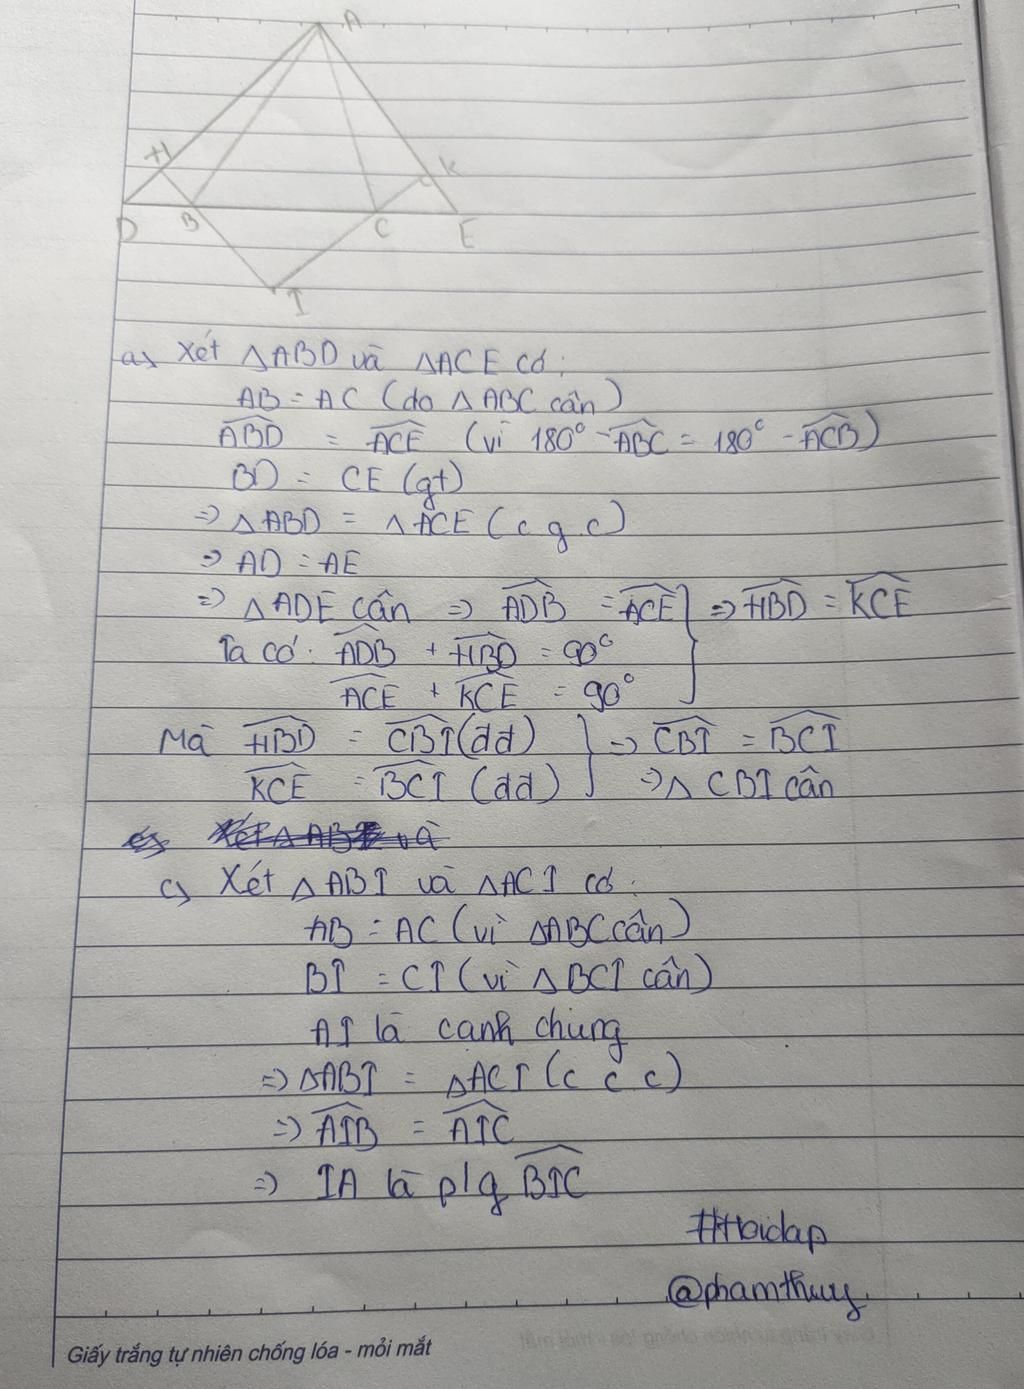 A
H
K
D
B
C
E
I
a) Xét △ABD và △ACE có:
AB = AC (do △ABC cân)
ABD = ACE (vì 180° - ABC = 180° - ACB)
BD = CE (gt)
=> △ABD = △ACE (c g c)
=> AD = AE
=> △ADE cân => ADB = ACE => HBD = KCE
Ta có: ADB + HBD = 90°
ACE + KCE = 90°
Mà HBD = CBI (đđ) => CBI = BCI
KCE = BCI (đđ) => △ CBI cân
c) Xét △ABI và △ACI có:
AB = AC (vì △ABC cân)
BI = CI (vì △BCI cân)
AI là canh chung
=> △ABI = △ACI (c c c)
=> AIB = AIC
=> IA là p/g BIC
#Hoidap
@phamthuy
Giấy trắng tự nhiên chống lóa - mỏi mắt